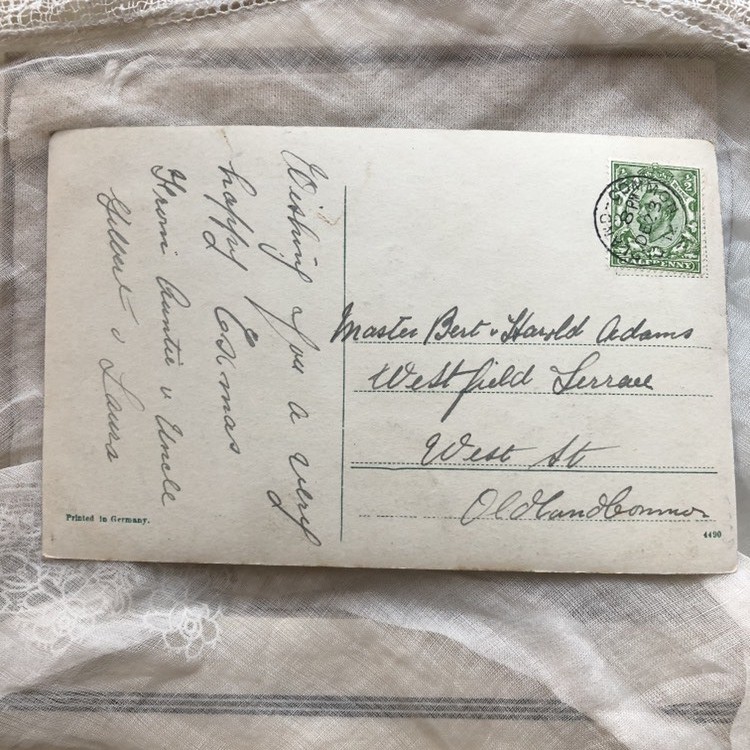 Wishing you a very
happy Exmas
From Auntie & Uncle
Gilbert & Laura
Master Bert & Harold Adams
Westfield Terrace
West St
Oldland Common
HALFPENNY
COMMON
8 PM
DE
Printed in Germany.
4490